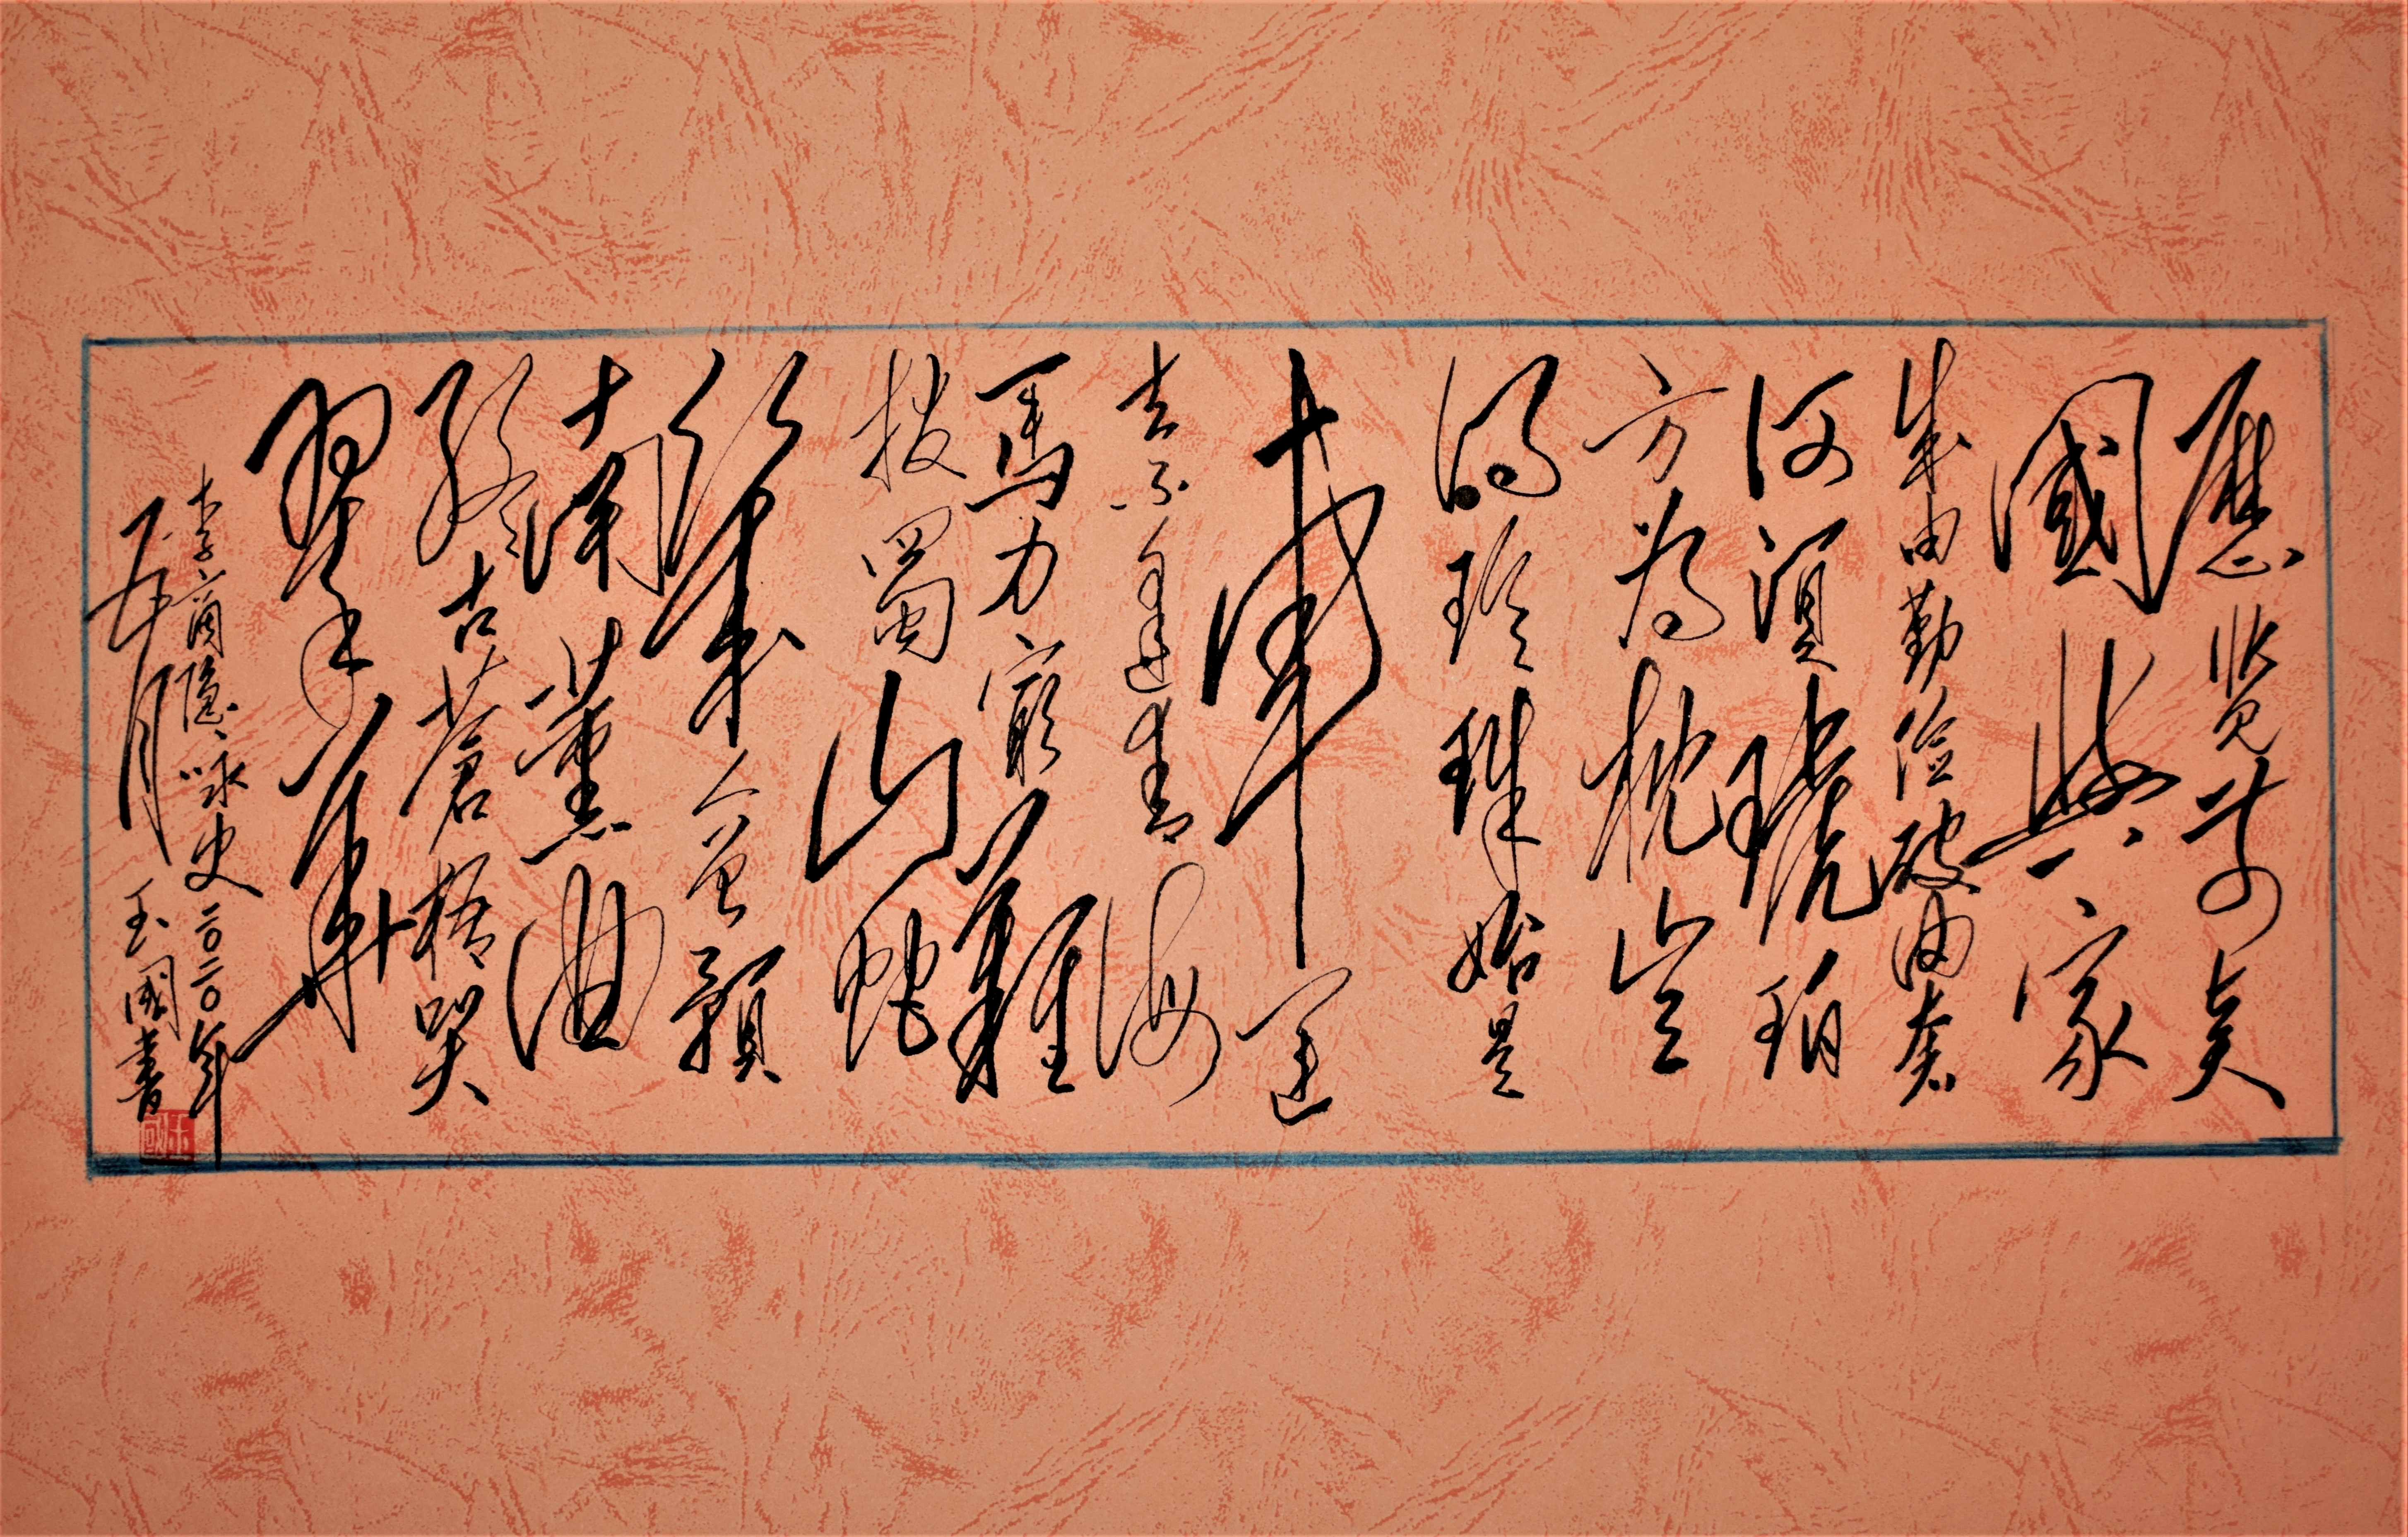 歷览前贤
國與家
成由勤俭破由奢
何須琥珀
方为枕岂
得珍珠始是
車運
去不逢青海
馬力窮難
拔蜀山蛇
幾人曾預
南薰曲
終古蒼梧哭
翠華
李商隐咏史二〇二〇年
五月 玉國書